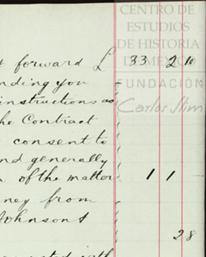 CENTRO DE
ESTUDIOS
DE HISTORIA
DE MEXICO
FUNDACIÓN
Carlos Slim
t forward £ 33 2 10
nding you
instructions as
he Contract
consent to
nd generally
n of the matter 1 1
ney from
Johnson &
28